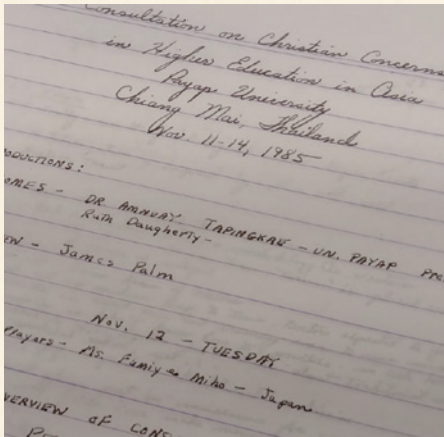 Consultation on Christian Concerns
in Higher Education in Asia
Payap University
Chiang Mai, Thailand
Nov. 11-14, 1985
ODUCTIONS:
OMES - DR AMNUAY TAPINGKAE - UN. PAYAP PRE
Ruth Daugherty -
EW - James Palm
Nov. 12 - TUESDAY
Prayers - Ms. Miho - Japan
VERVIEW OF CONS